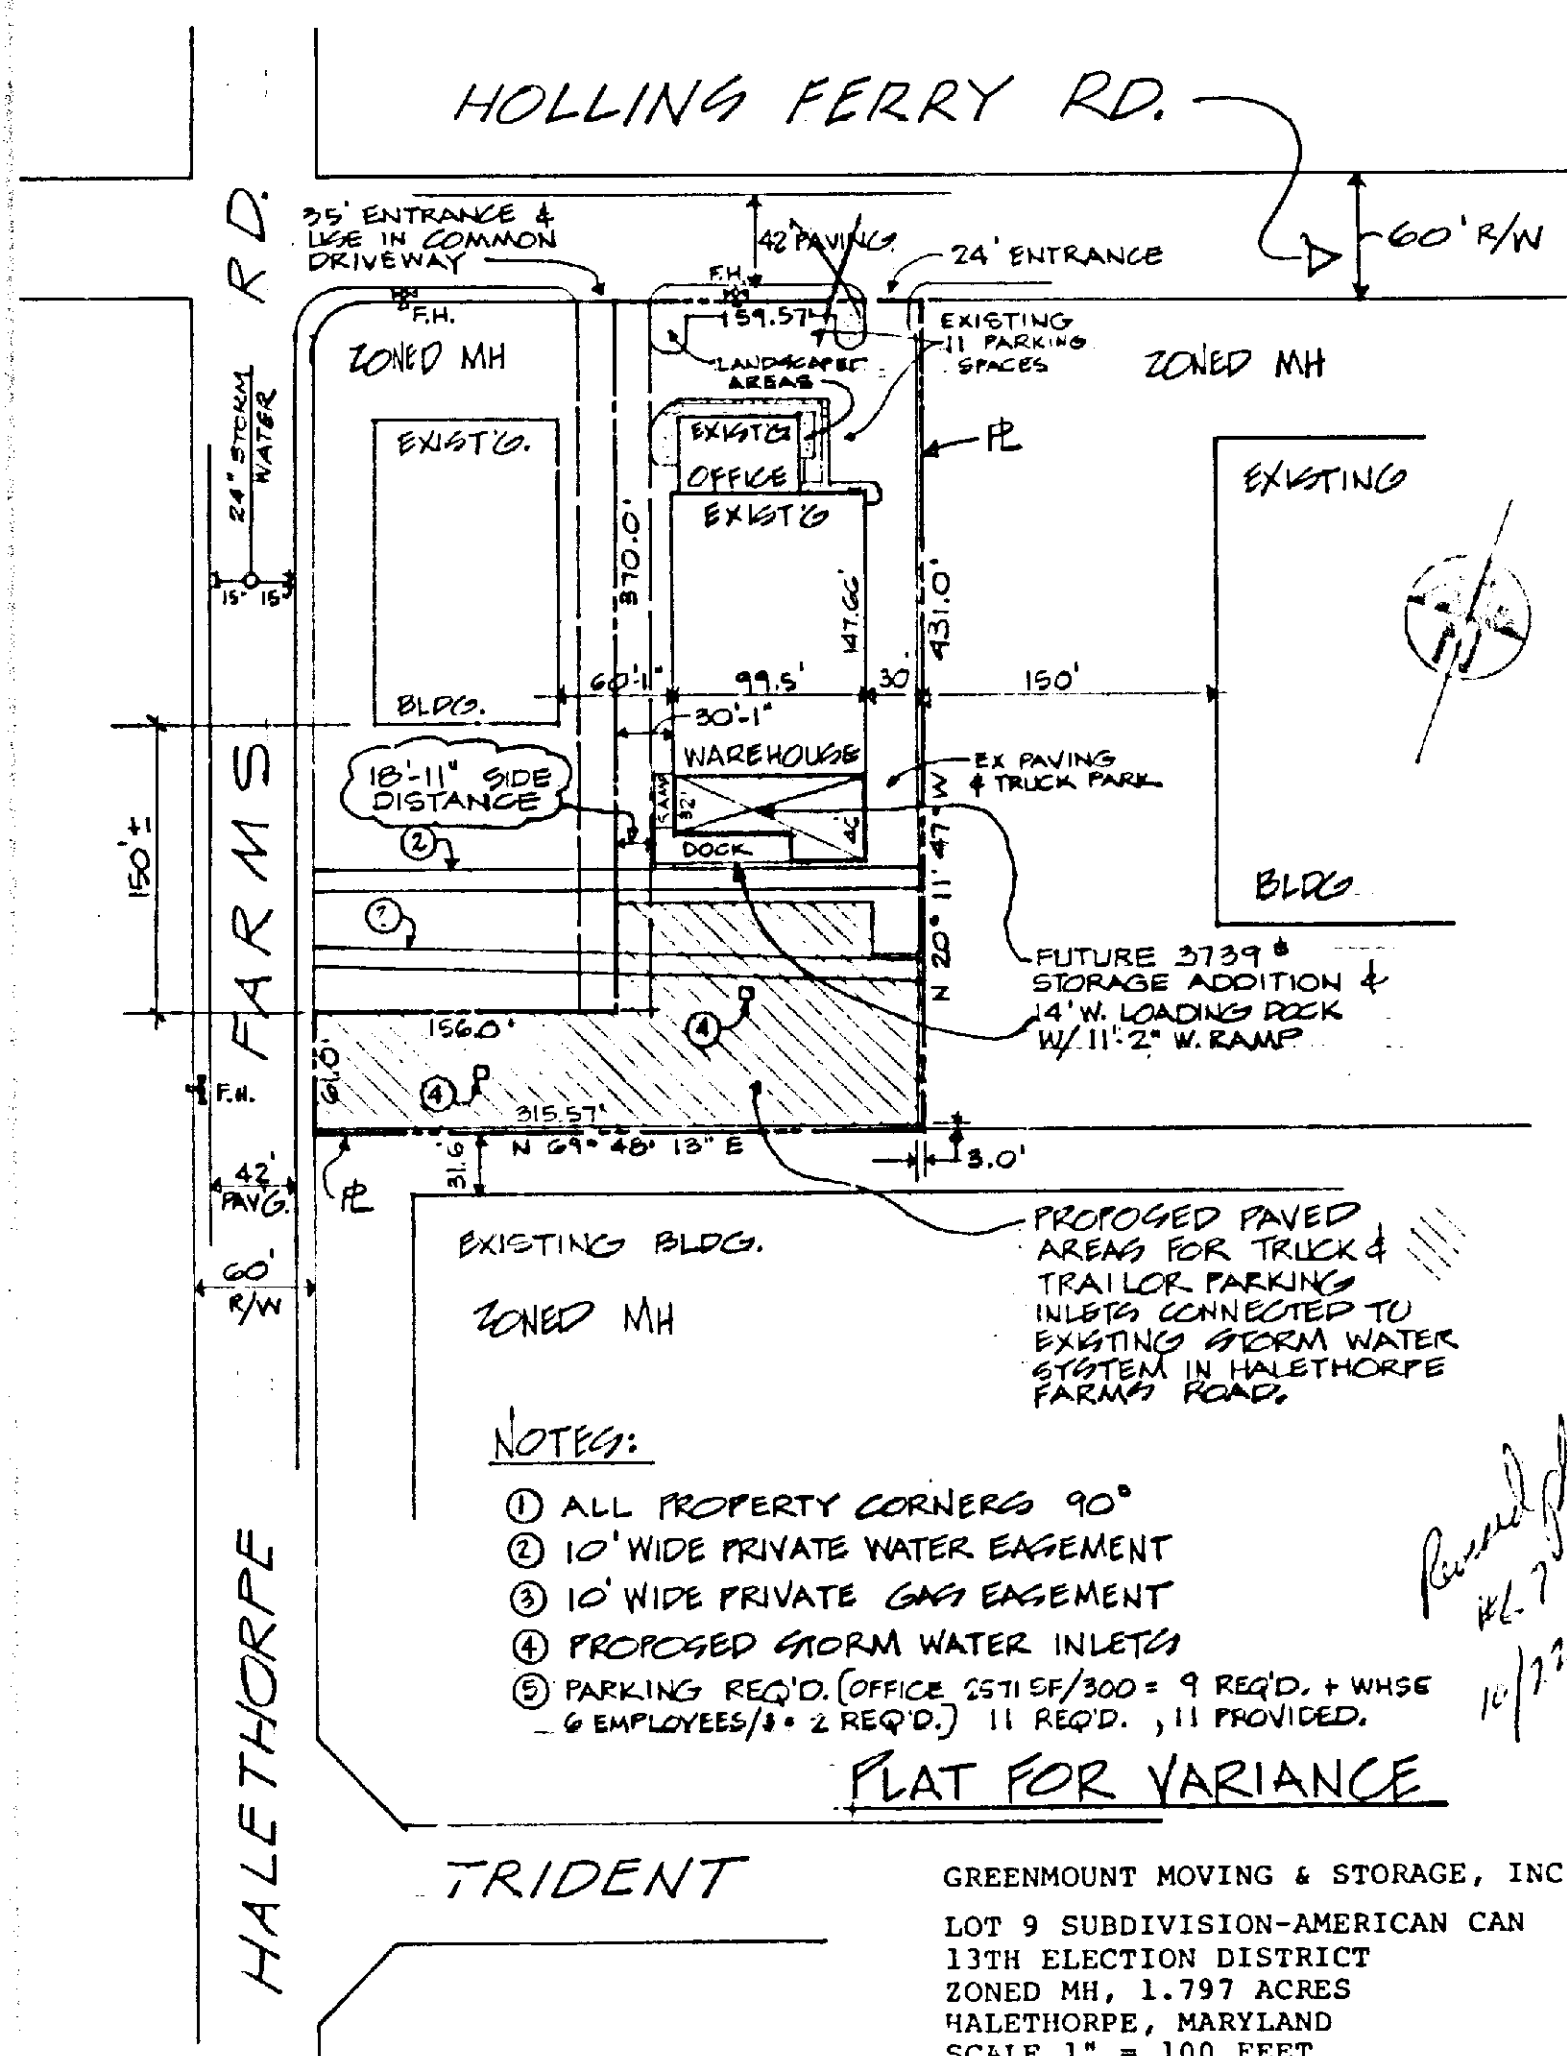 HOLLINS FERRY RD.
60' R/W
35' ENTRANCE &
USE IN COMMON
DRIVEWAY
42' PAVING
24' ENTRANCE
F.H.
F.H.
159.57'
EXISTING
11 PARKING
SPACES
ZONED MH
LANDSCAPED
AREAS
ZONED MH
24" STORM
WATER
EXIST'G.
BLDG.
EXIST'G
OFFICE
EXIST'G
WAREHOUSE
PL
EXISTING
BLDG.
15' 15'
370.0'
147.66'
431.0'
60'-1"
99.5'
30'
150'
30'-1"
18'-11" SIDE
DISTANCE
RAMP
32'
46'
DOCK
EX PAVING
& TRUCK PARK
2
?
150' ±
N 20° 11' 47" W
FUTURE 3739
STORAGE ADDITION &
14' W. LOADING DOCK
W/ 11'-2" W. RAMP
156.0'
61.0'
4
4
F.H.
315.57'
N 69° 48' 13" E
31.6'
3.0'
PL
42'
PAV'G.
60'
R/W
EXISTING BLDG.
ZONED MH
PROPOSED PAVED
AREAS FOR TRUCK &
TRAILOR PARKING
INLETS CONNECTED TO
EXISTING STORM WATER
SYSTEM IN HALETHORPE
FARMS ROAD.
HALETHORPE FARMS RD.
NOTES:
① ALL PROPERTY CORNERS 90°
② 10' WIDE PRIVATE WATER EASEMENT
③ 10' WIDE PRIVATE GAS EASEMENT
④ PROPOSED STORM WATER INLETS
⑤ PARKING REQ'D. (OFFICE 2571 SF/300 = 9 REQ'D. + WHSE
6 EMPLOYEES/3 = 2 REQ'D.) 11 REQ'D., 11 PROVIDED.
PLAT FOR VARIANCE
TRIDENT
GREENMOUNT MOVING & STORAGE, INC
LOT 9 SUBDIVISION-AMERICAN CAN
13TH ELECTION DISTRICT
ZONED MH, 1.797 ACRES
HALETHORPE, MARYLAND
SCALE 1" = 100 FEET